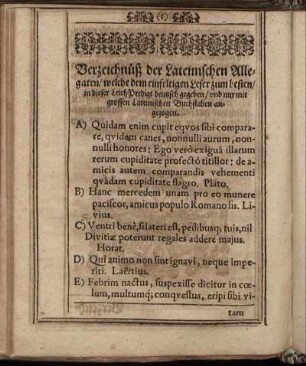 (8)
Verzeichnüß der Lateinischen Alle-
gaten/ welche dem einfeltigen Leser zum besten/
in dieser Leich-Predigt deutsch gegeben/ und nur mit
grossen Lateinischen Buchstaben an-
gezogen.
A) Quidam enim cupit eqvos sibi compara-
re, qvidam canes, nonnulli aurum, non-
nulli honores: Ego verò exiguâ illarum
rerum cupiditate profectò titillor; de a-
micis autem comparandis vehementi
qvâdam cupiditate flagro. Plato.
B) Hanc mercedem unam pro eo munere
paciscor, amicus populo Romano sis. Li-
vius.
C) Ventri benè, si lateri est, pedibusq; tuis, nil
Divitiæ poterunt regales addere majus.
Horat.
D) Qui animo non sint ignavi, neque impe-
riti. Laërtius.
E) Febrim nactus, suspexisse dicitur in cœ-
lum, multumq; conqvestus, eripi sibi vi-
tam